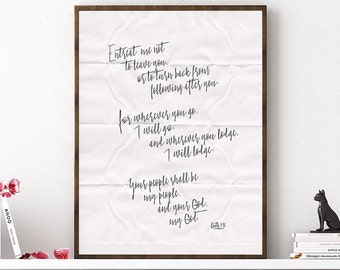 Entreat me not
to leave you,
or to turn back from
following after you.
For wherever you go,
I will go.
and wherever you lodge,
I will lodge.
Your people shall be
my people,
and your God,
my God.